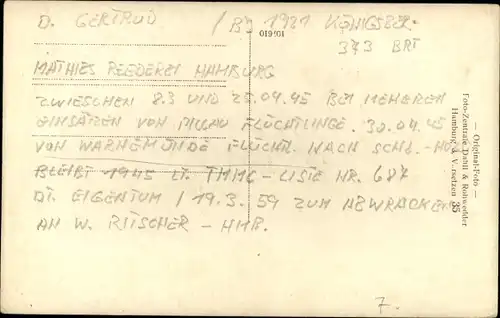 D. GERTRUD / BJ 1921 KÖNIGSBER.
019101
373 BRT
MATHIES REEDEREI HAMBURG
ZWIESCHEN 8.3 UND 25.04.45 BEI MEHEREN
EINSÄTZEN VON PILLAU FLÜCHTLINGE. 30.04.45
VON WARNEMÜNDE FLÜCHTL. NACH SCHL.-HOL
BLEIBT 1945 LT. TMMC-LISTE NR. 687
DT. EIGENTUM / 19.3.59 ZUM ABWRACKEN
AN W. RITSCHER - HMB.
7.
— Original-Foto —
Foto-Zentrale Dahil & Rohwedder
Hamburg 35